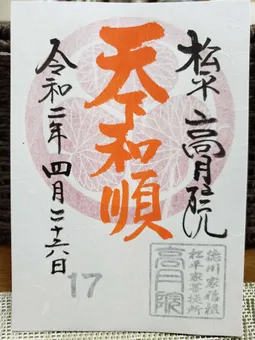 松平 高月院
天下和順
令和二年四月二十六日
17
徳川家信根
松平家菩提所
高月院